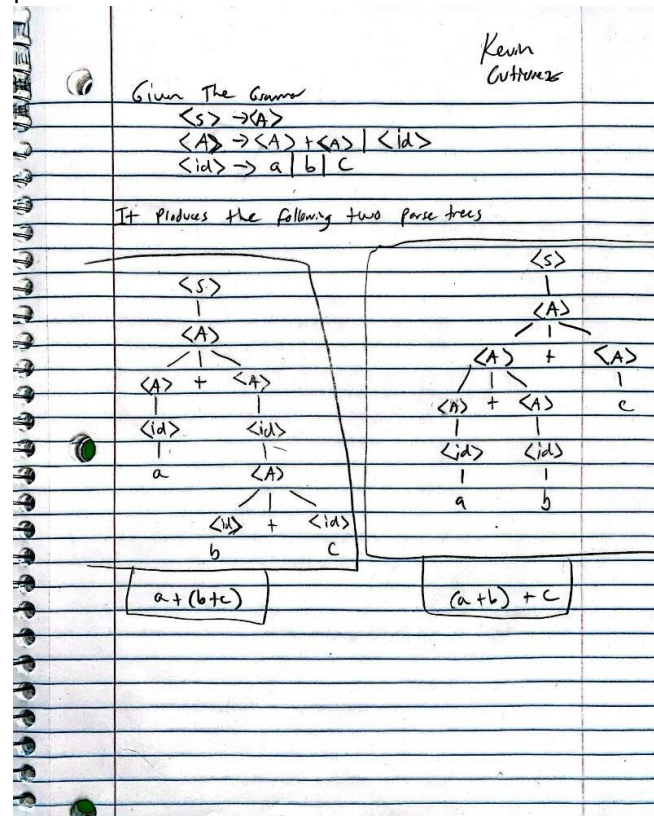 Kevin
Gutierrez
Given The Grammar
<S> → <A>
<A> → <A> + <A> | <id>
<id> → a | b | c
It Produces the following two parse trees
<S>
<A>
<A> + <A>
<id> <id>
a <A>
<id> + <id>
b c
a + (b+c)
<S>
<A>
<A> + <A>
<A> + <A> c
<id> <id>
a b
(a+b) + c